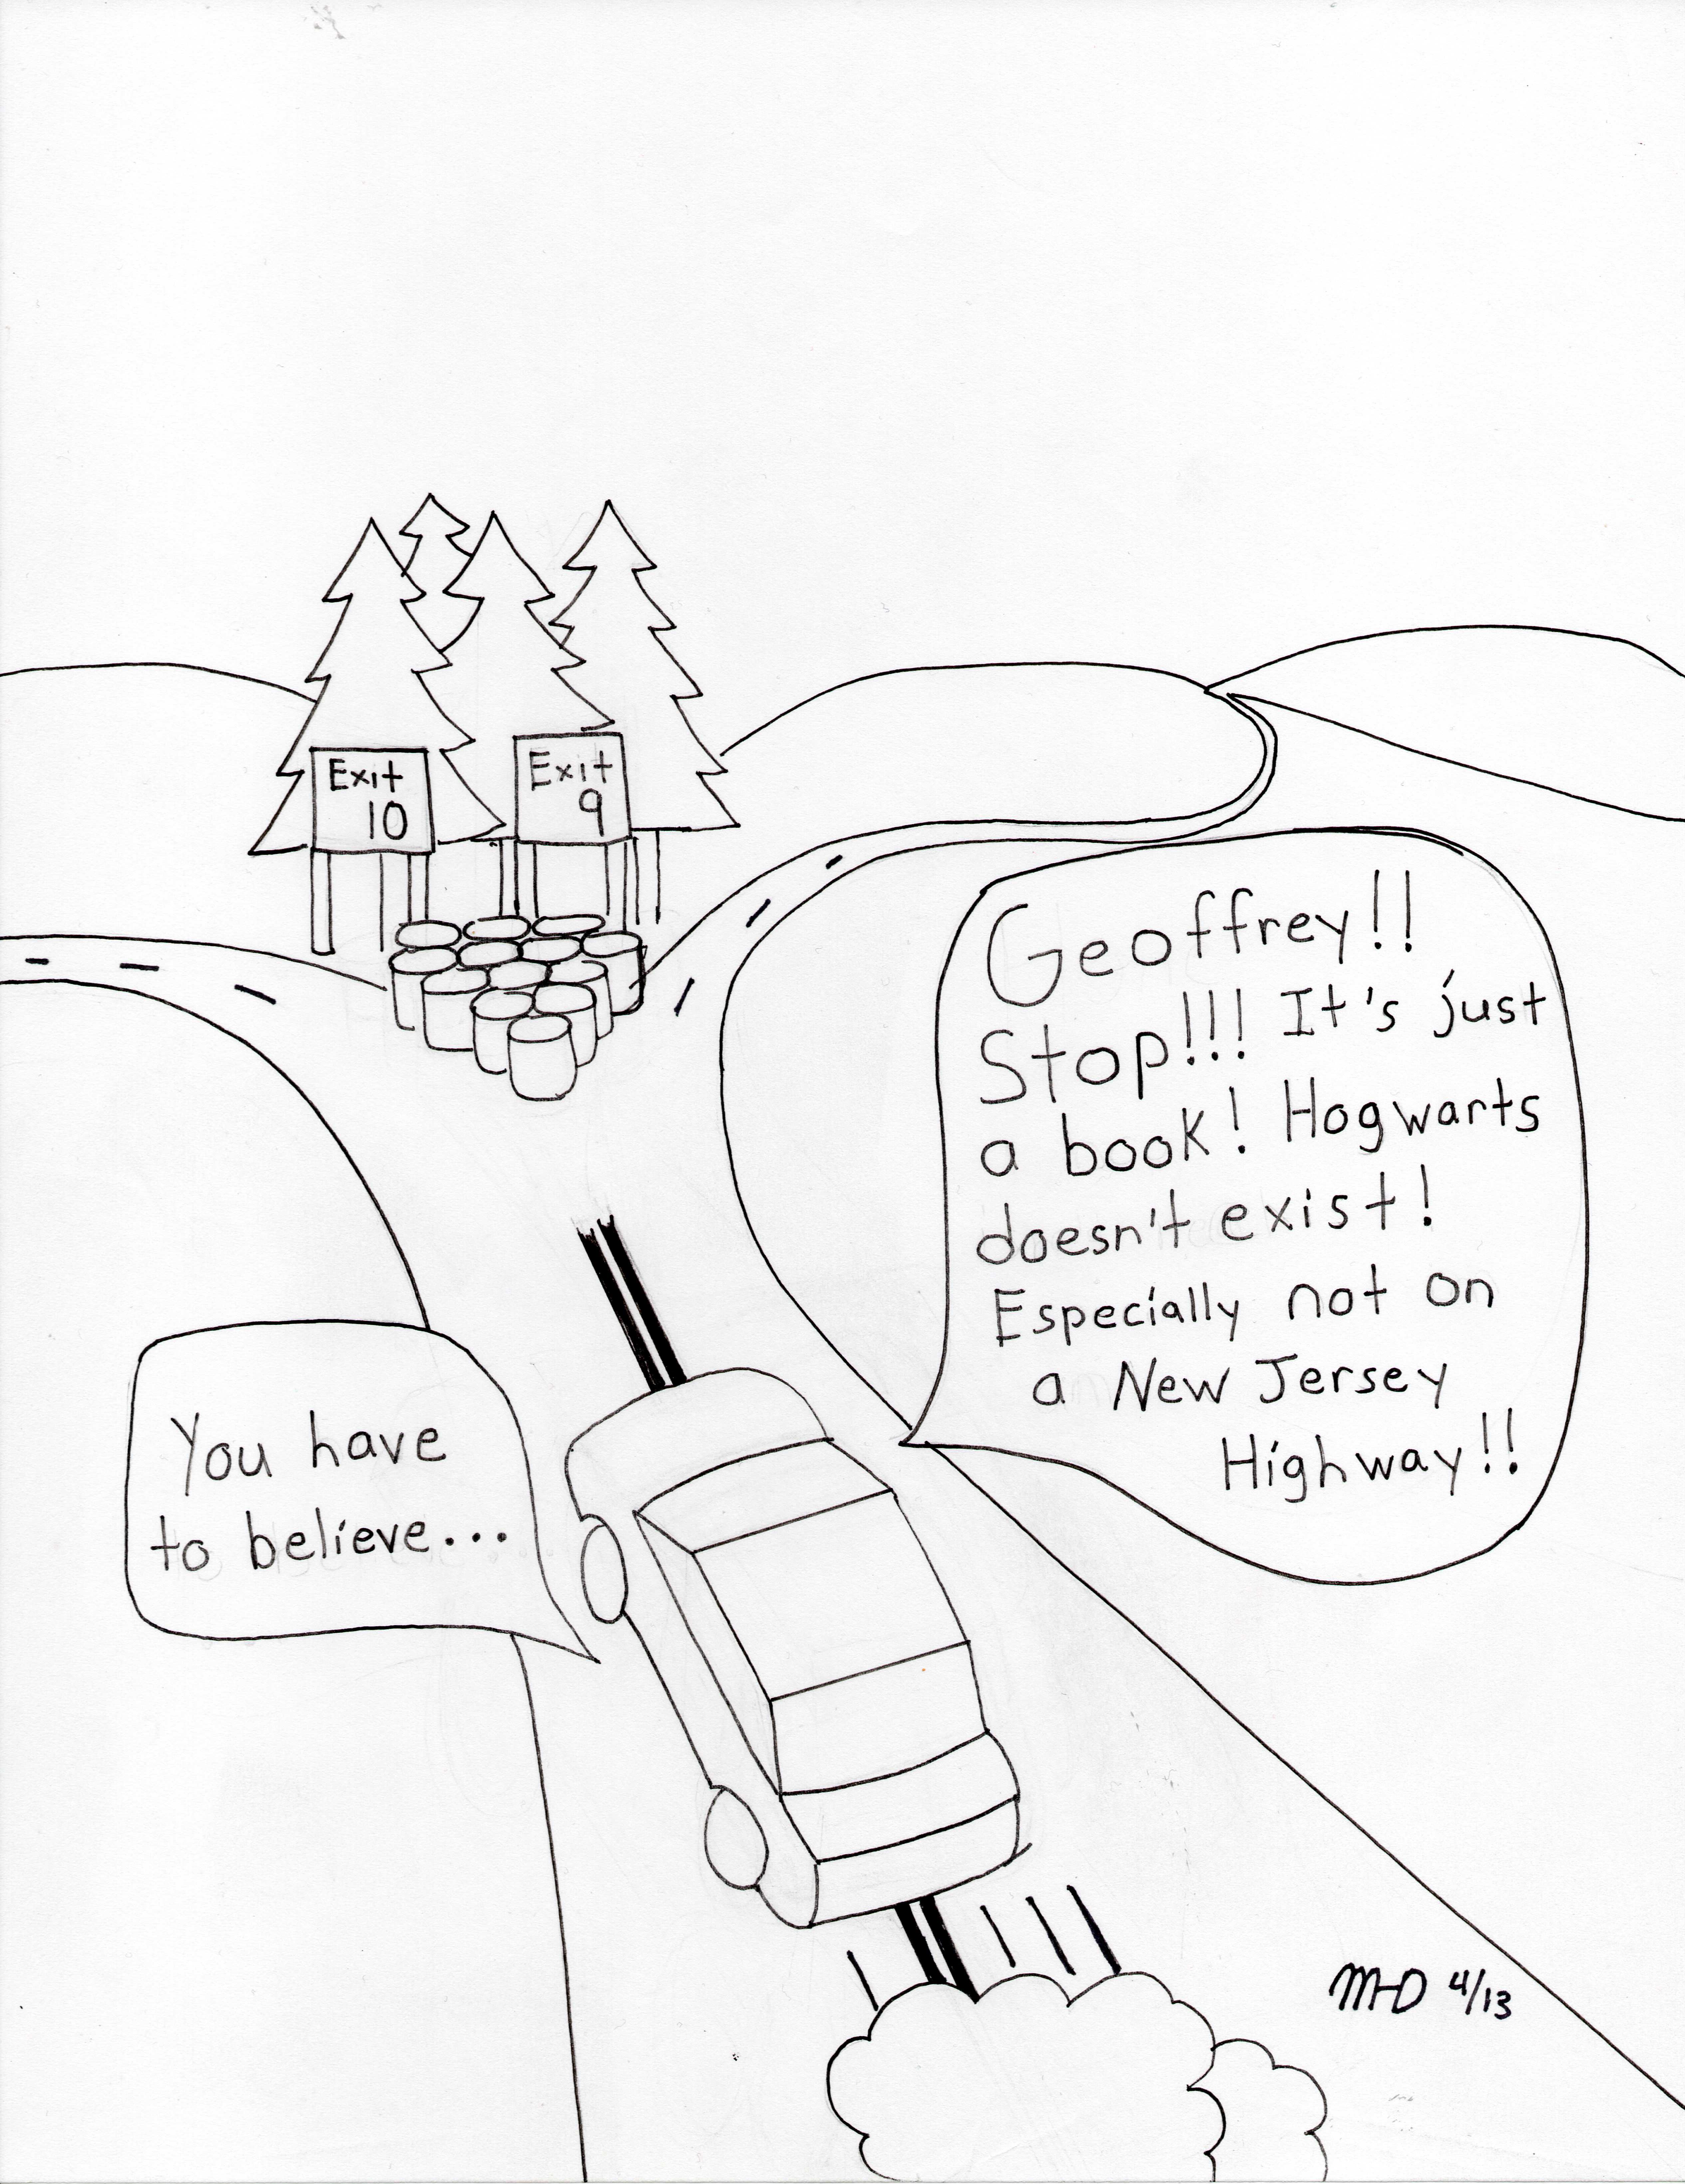 Exit
10
Exit
9
Geoffrey!!
Stop!!! It's just
a book! Hogwarts
doesn't exist!
Especially not on
a New Jersey
Highway!!
You have
to believe...
MHD 4/13